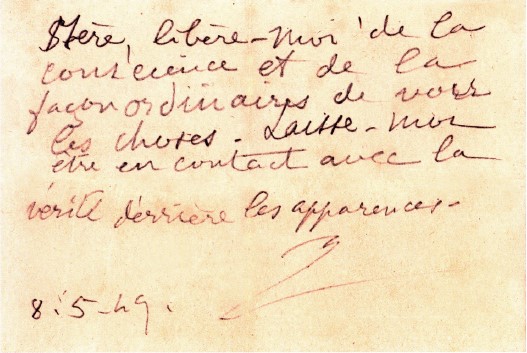 Mère, libère-moi de la
conscience et de la
façon ordinaires de voir
les choses. Laisse-moi
être en contact avec la
vérité derrière les apparences.
8-5-49.